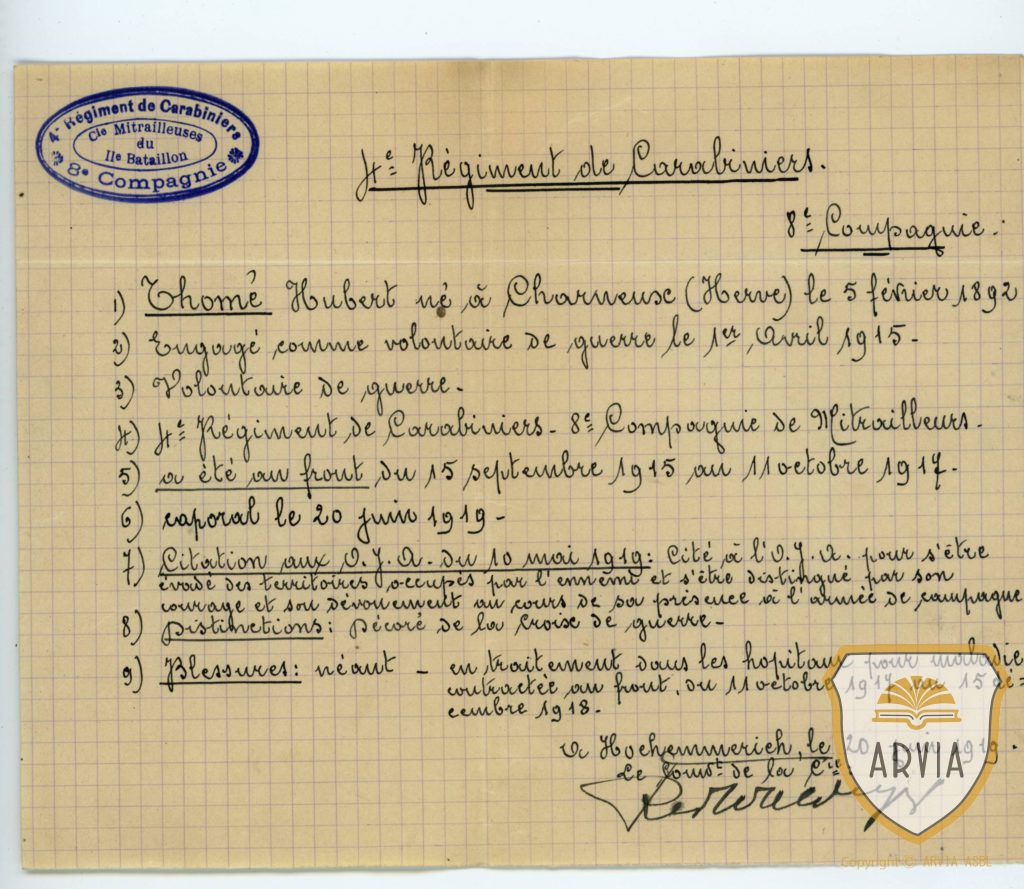 4e Régiment de Carabiniers
Cie Mitrailleuses
du
IIe Bataillon
8e Compagnie
4e Régiment de Carabiniers.
8e Compagnie.
1) Thomé Hubert né à Charneux (Herve) le 5 février 1892
2) Engagé comme volontaire de guerre le 1er Avril 1915.
3) Volontaire de guerre.
4) 4e Régiment de Carabiniers - 8e Compagnie de Mitrailleurs.
5) a été au front du 15 septembre 1915 au 11 octobre 1917.
6) caporal le 20 juin 1919.
7) Citation aux O.J.A. du 10 mai 1919: Cité à l'O.J.A. pour s'être
évadé des territoires occupés par l'ennemi et s'être distingué par son
courage et son dévouement au cours de sa présence à l'armée de campagne
8) Distinctions: Décoré de la Croix de guerre.
9) Blessures: néant - en traitement dans les hopitaux pour maladie
contractée au front, du 11 octobre 1917 au 15 dé=
cembre 1918.
A Hochemmerich, le 20 juin 1919.
Le Comdt de la Cie
ARVIA
Copyright © ARVIA ASBL